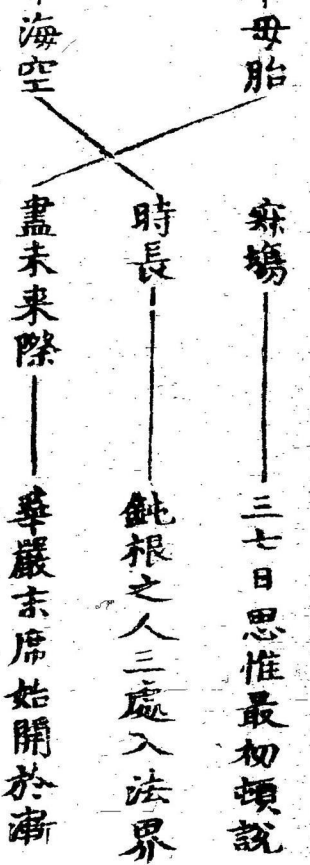 毋胎
海空
寂場 三七日思惟最初頓說
時長 鈍根之人三處入法界
盡未来際 華嚴末席始開於漸